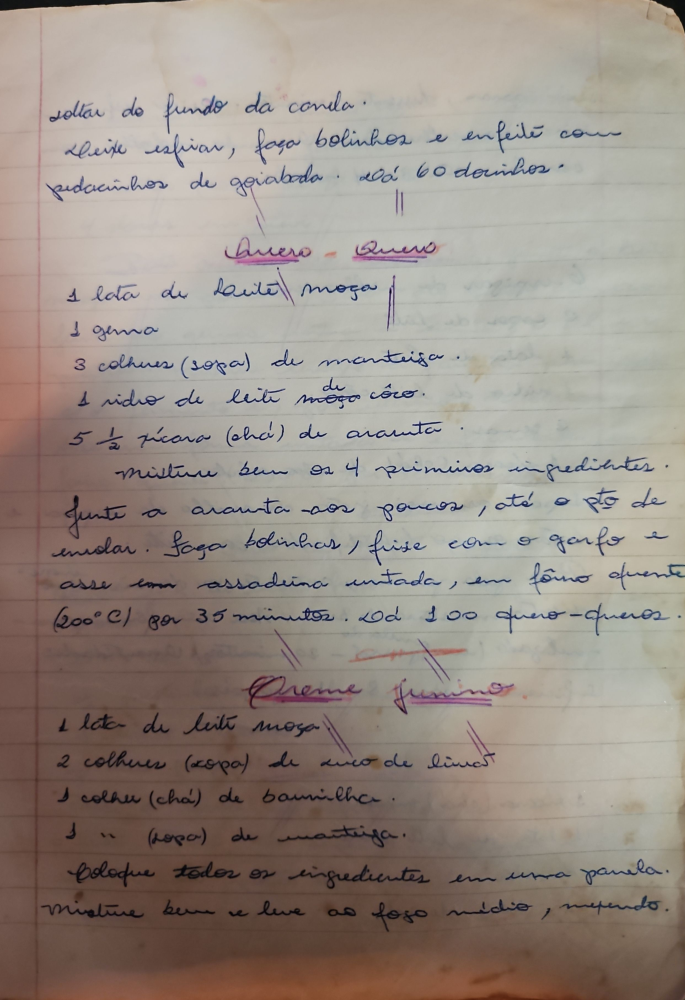 soltar do fundo da panela.
Deixe esfriar, faça bolinhos e enfeite com
pedacinhos de goiabada. Dá 60 docinhos.
Quero - Quero
1 lata de Leite moça
1 gema
3 colheres (sopa) de manteiga.
1 vidro de leite moça de côco.
5 1/2 xícara (chá) de araruta.
Misture bem os 4 primeiros ingredientes.
Junte a araruta aos poucos, até o pto de
enrolar. Faça bolinhas, frise com o garfo e
asse em assadeira untada, em fôrno quente
(200°C) por 35 minutos. Dá 100 quero-queros.
Creme Junino
1 lata de leite moça.
2 colheres (sopa) de suco de limão
1 colher (chá) de baunilha.
1 " (sopa) de manteiga.
Coloque todos os ingredientes em uma panela.
Misture bem e leve ao fogo médio, mexendo.